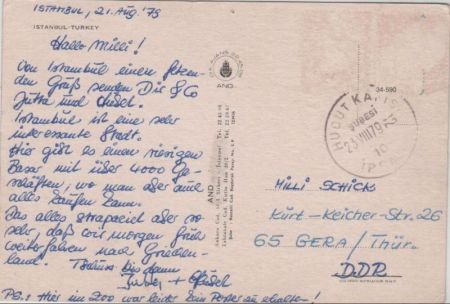 ISTANBUL, 21. Aug. '79
ISTANBUL-TURKEY
Hallo Milli!
Von Istanbul einen
den Gruß senden Dir & Co
Jutta und
Istanbul ist eine sehr
interessante Stadt.
Hier gibt es einen riesigen
Basar mit über 4000 Ge-
schäften, wo man aber auch
alles kaufen kann.
Das alles strapaziert aber so
sehr, daß wir morgen früh
weiterfahren nach Griechen-
land.
Tschüss bis dann
Jutta +
PS.: Hier im Zoo war leider kein Poster zu erhalten!
AND
34-590
HUDUT KAPISI
ŞUBESİ
23 VIII 79
10
MILLI SCHICK
Kurt-Keicher-Str. 26
65 GERA/Thür.
DDR